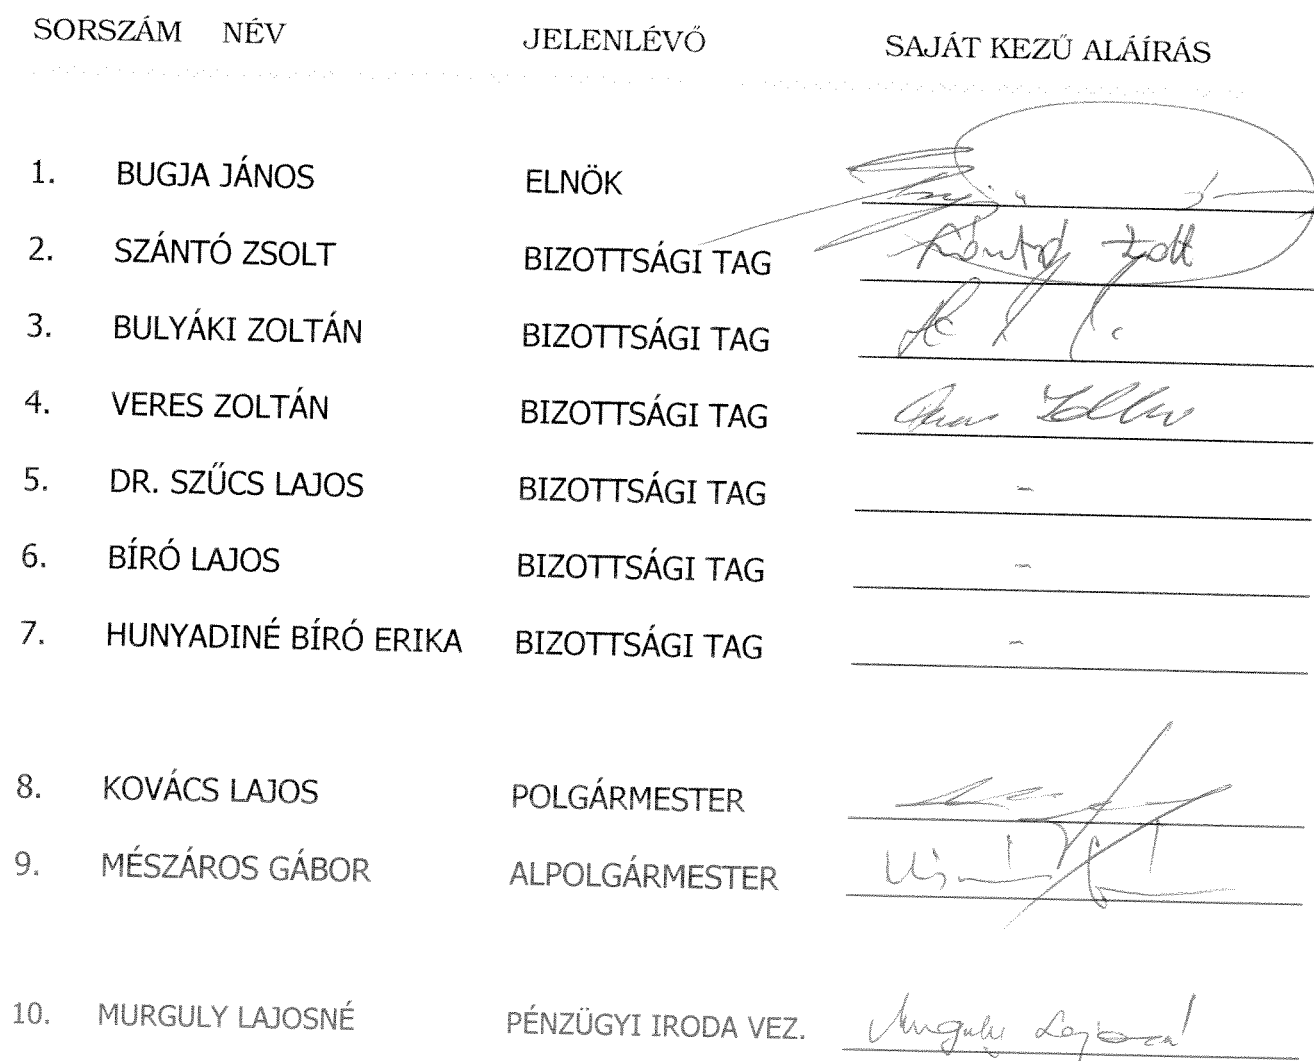 SORSZÁM NÉV JELENLÉVŐ SAJÁT KEZŰ ALÁÍRÁS
1. BUGJA JÁNOS ELNÖK
2. SZÁNTÓ ZSOLT BIZOTTSÁGI TAG Szántó Zsolt
3. BULYÁKI ZOLTÁN BIZOTTSÁGI TAG
4. VERES ZOLTÁN BIZOTTSÁGI TAG
5. DR. SZŰCS LAJOS BIZOTTSÁGI TAG -
6. BÍRÓ LAJOS BIZOTTSÁGI TAG -
7. HUNYADINÉ BÍRÓ ERIKA BIZOTTSÁGI TAG -
8. KOVÁCS LAJOS POLGÁRMESTER
9. MÉSZÁROS GÁBOR ALPOLGÁRMESTER
10. MURGULY LAJOSNÉ PÉNZÜGYI IRODA VEZ. Murguly Lajosné